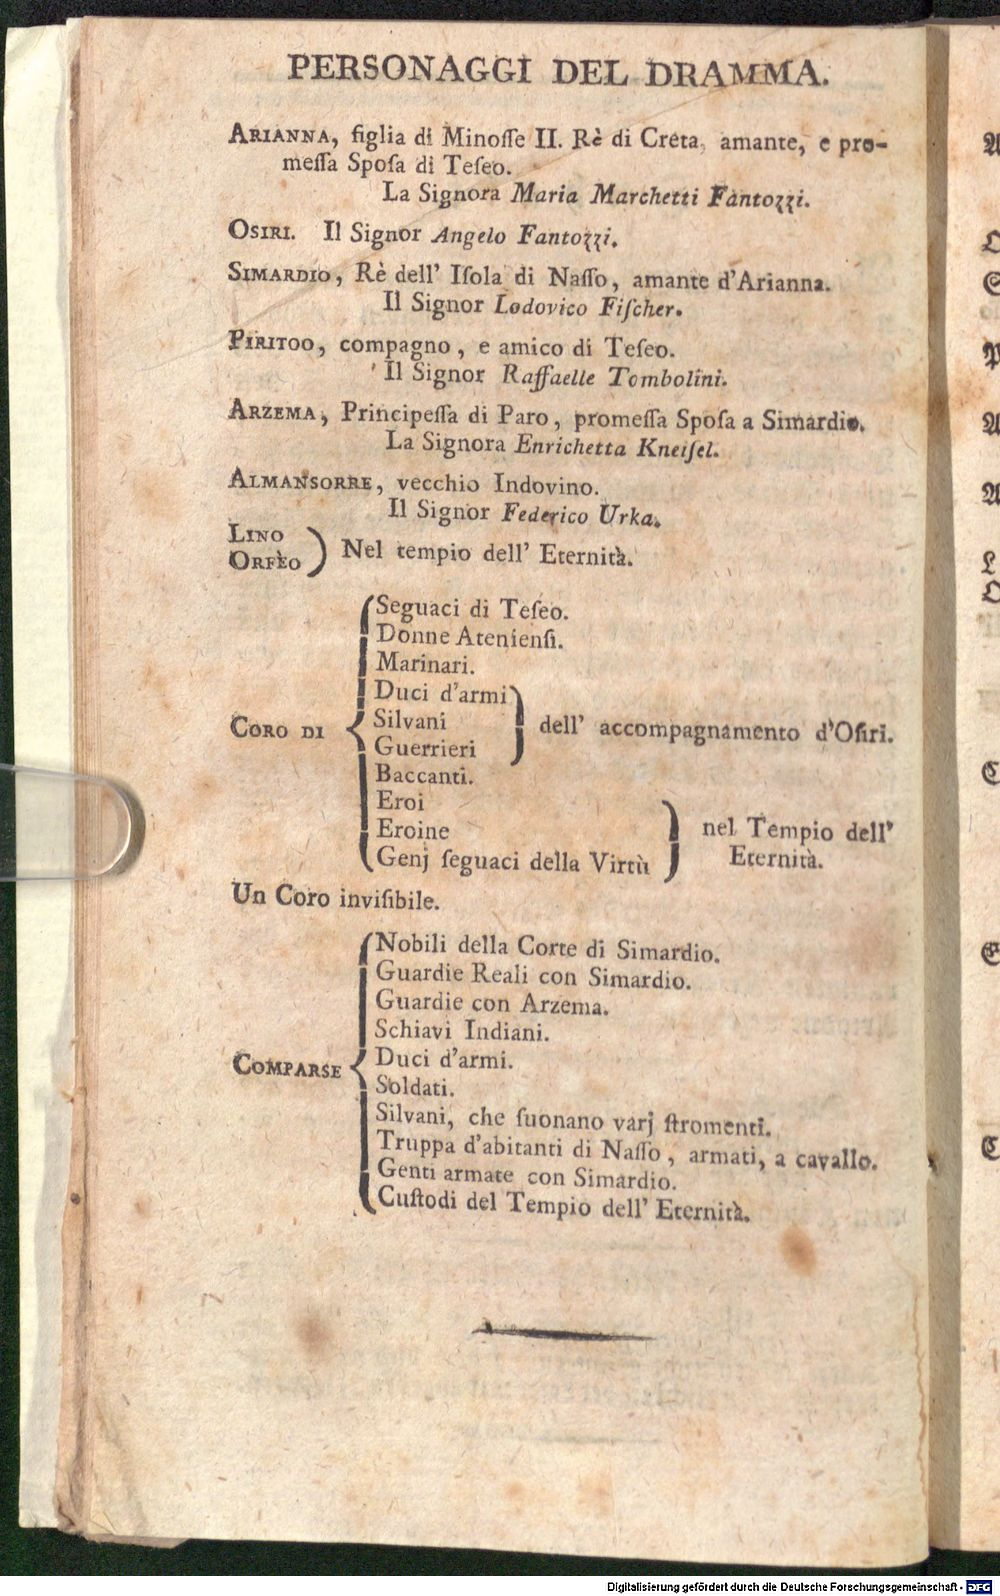 PERSONAGGI DEL DRAMMA.
ARIANNA, figlia di Minoſſe II. Rè di Creta, amante, e pro-
meſſa Spoſa di Teſeo.
La Signora Maria Marchetti Fantozzi.
OSIRI. Il Signor Angelo Fantozzi.
SIMARDIO, Rè dell' Iſola di Naſſo, amante d'Arianna.
Il Signor Lodovico Fiſcher.
PIRITOO, compagno, e amico di Teſeo.
Il Signor Raffaelle Tombolini.
ARZEMA, Principeſſa di Paro, promeſſa Spoſa a Simardio.
La Signora Enrichetta Kneiſel.
ALMANSORRE, vecchio Indovino.
Il Signor Federico Urka.
LINO
ORFÈO
Nel tempio dell' Eternità.
CORO DI
Seguaci di Teſeo.
Donne Atenienſi.
Marinari.
Duci d'armi
Silvani
Guerrieri
dell' accompagnamento d'Oſiri.
Baccanti.
Eroi
Eroine
Genj ſeguaci della Virtù
nel Tempio dell'
Eternità.
Un Coro inviſibile.
COMPARSE
Nobili della Corte di Simardio.
Guardie Reali con Simardio.
Guardie con Arzema.
Schiavi Indiani.
Duci d'armi.
Soldati.
Silvani, che ſuonano varj ſtromenti.
Truppa d'abitanti di Naſſo, armati, a cavallo.
Genti armate con Simardio.
Cuſtodi del Tempio dell' Eternità.
Digitalisierung gefördert durch die Deutsche Forschungsgemeinschaft - DFG